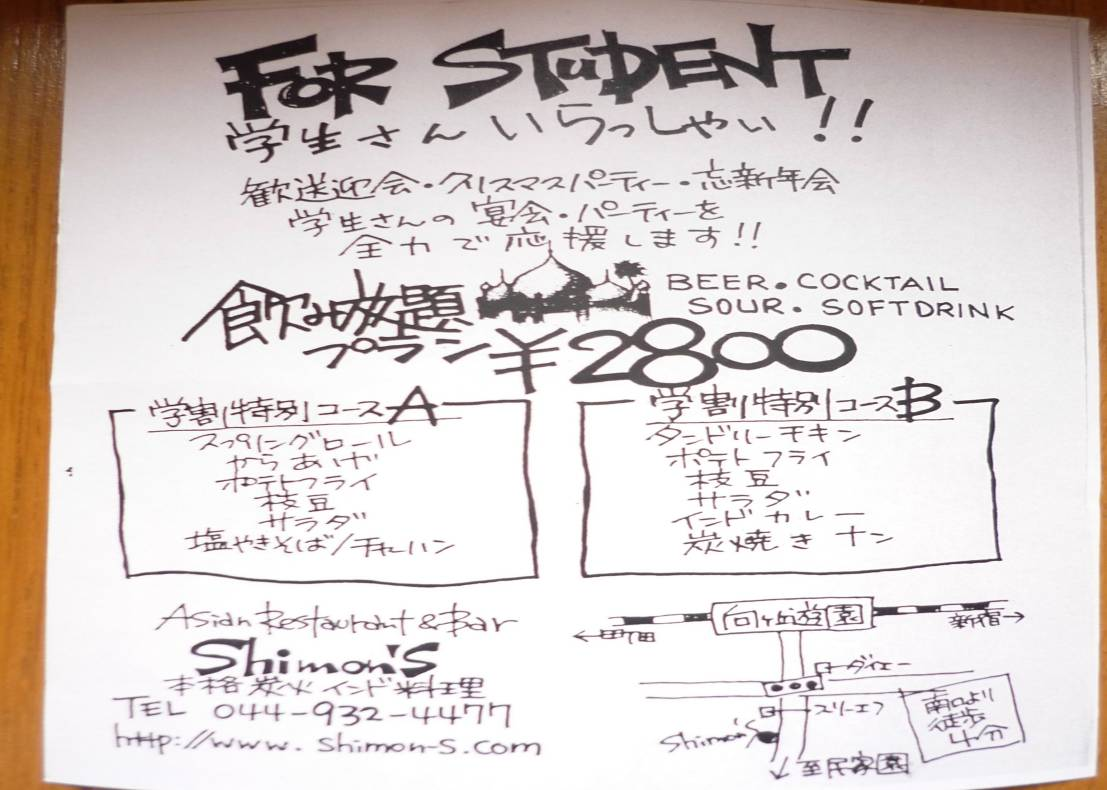 FOR STUDENT
学生さんいらっしゃい!!
歓送迎会・クリスマスパーティー・忘新年会
学生さんの宴会・パーティーを
全力で応援します!!
飲み放題
プラン ¥2800
BEER・COCKTAIL
SOUR・SOFTDRINK
学割特別コースA
スプリングロール
からあげ
ポテトフライ
枝豆
サラダ
塩やきそば/チャーハン
学割特別コースB
タンドリーチキン
ポテトフライ
枝豆
サラダ
インドカレー
炭焼きナン
Asian Restaurant & Bar
Shimon's
本格炭火インド料理
TEL 044-932-4477
http://www.shimon-s.com
向ヶ丘遊園
←町田
新宿→
ダイエー
スリーエフ
Shimon's
南口より
徒歩
4分
至民家園